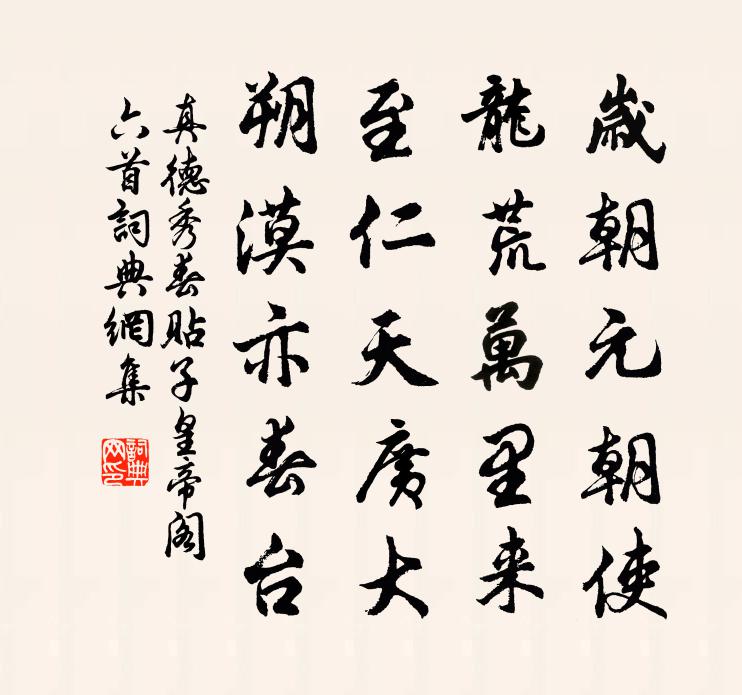 歲朝元朝使
龍荒萬里来
至仁天廣大
朔漠亦春台
真德秀春貼子皇帝阁
六首詞典網集
詞典
网印